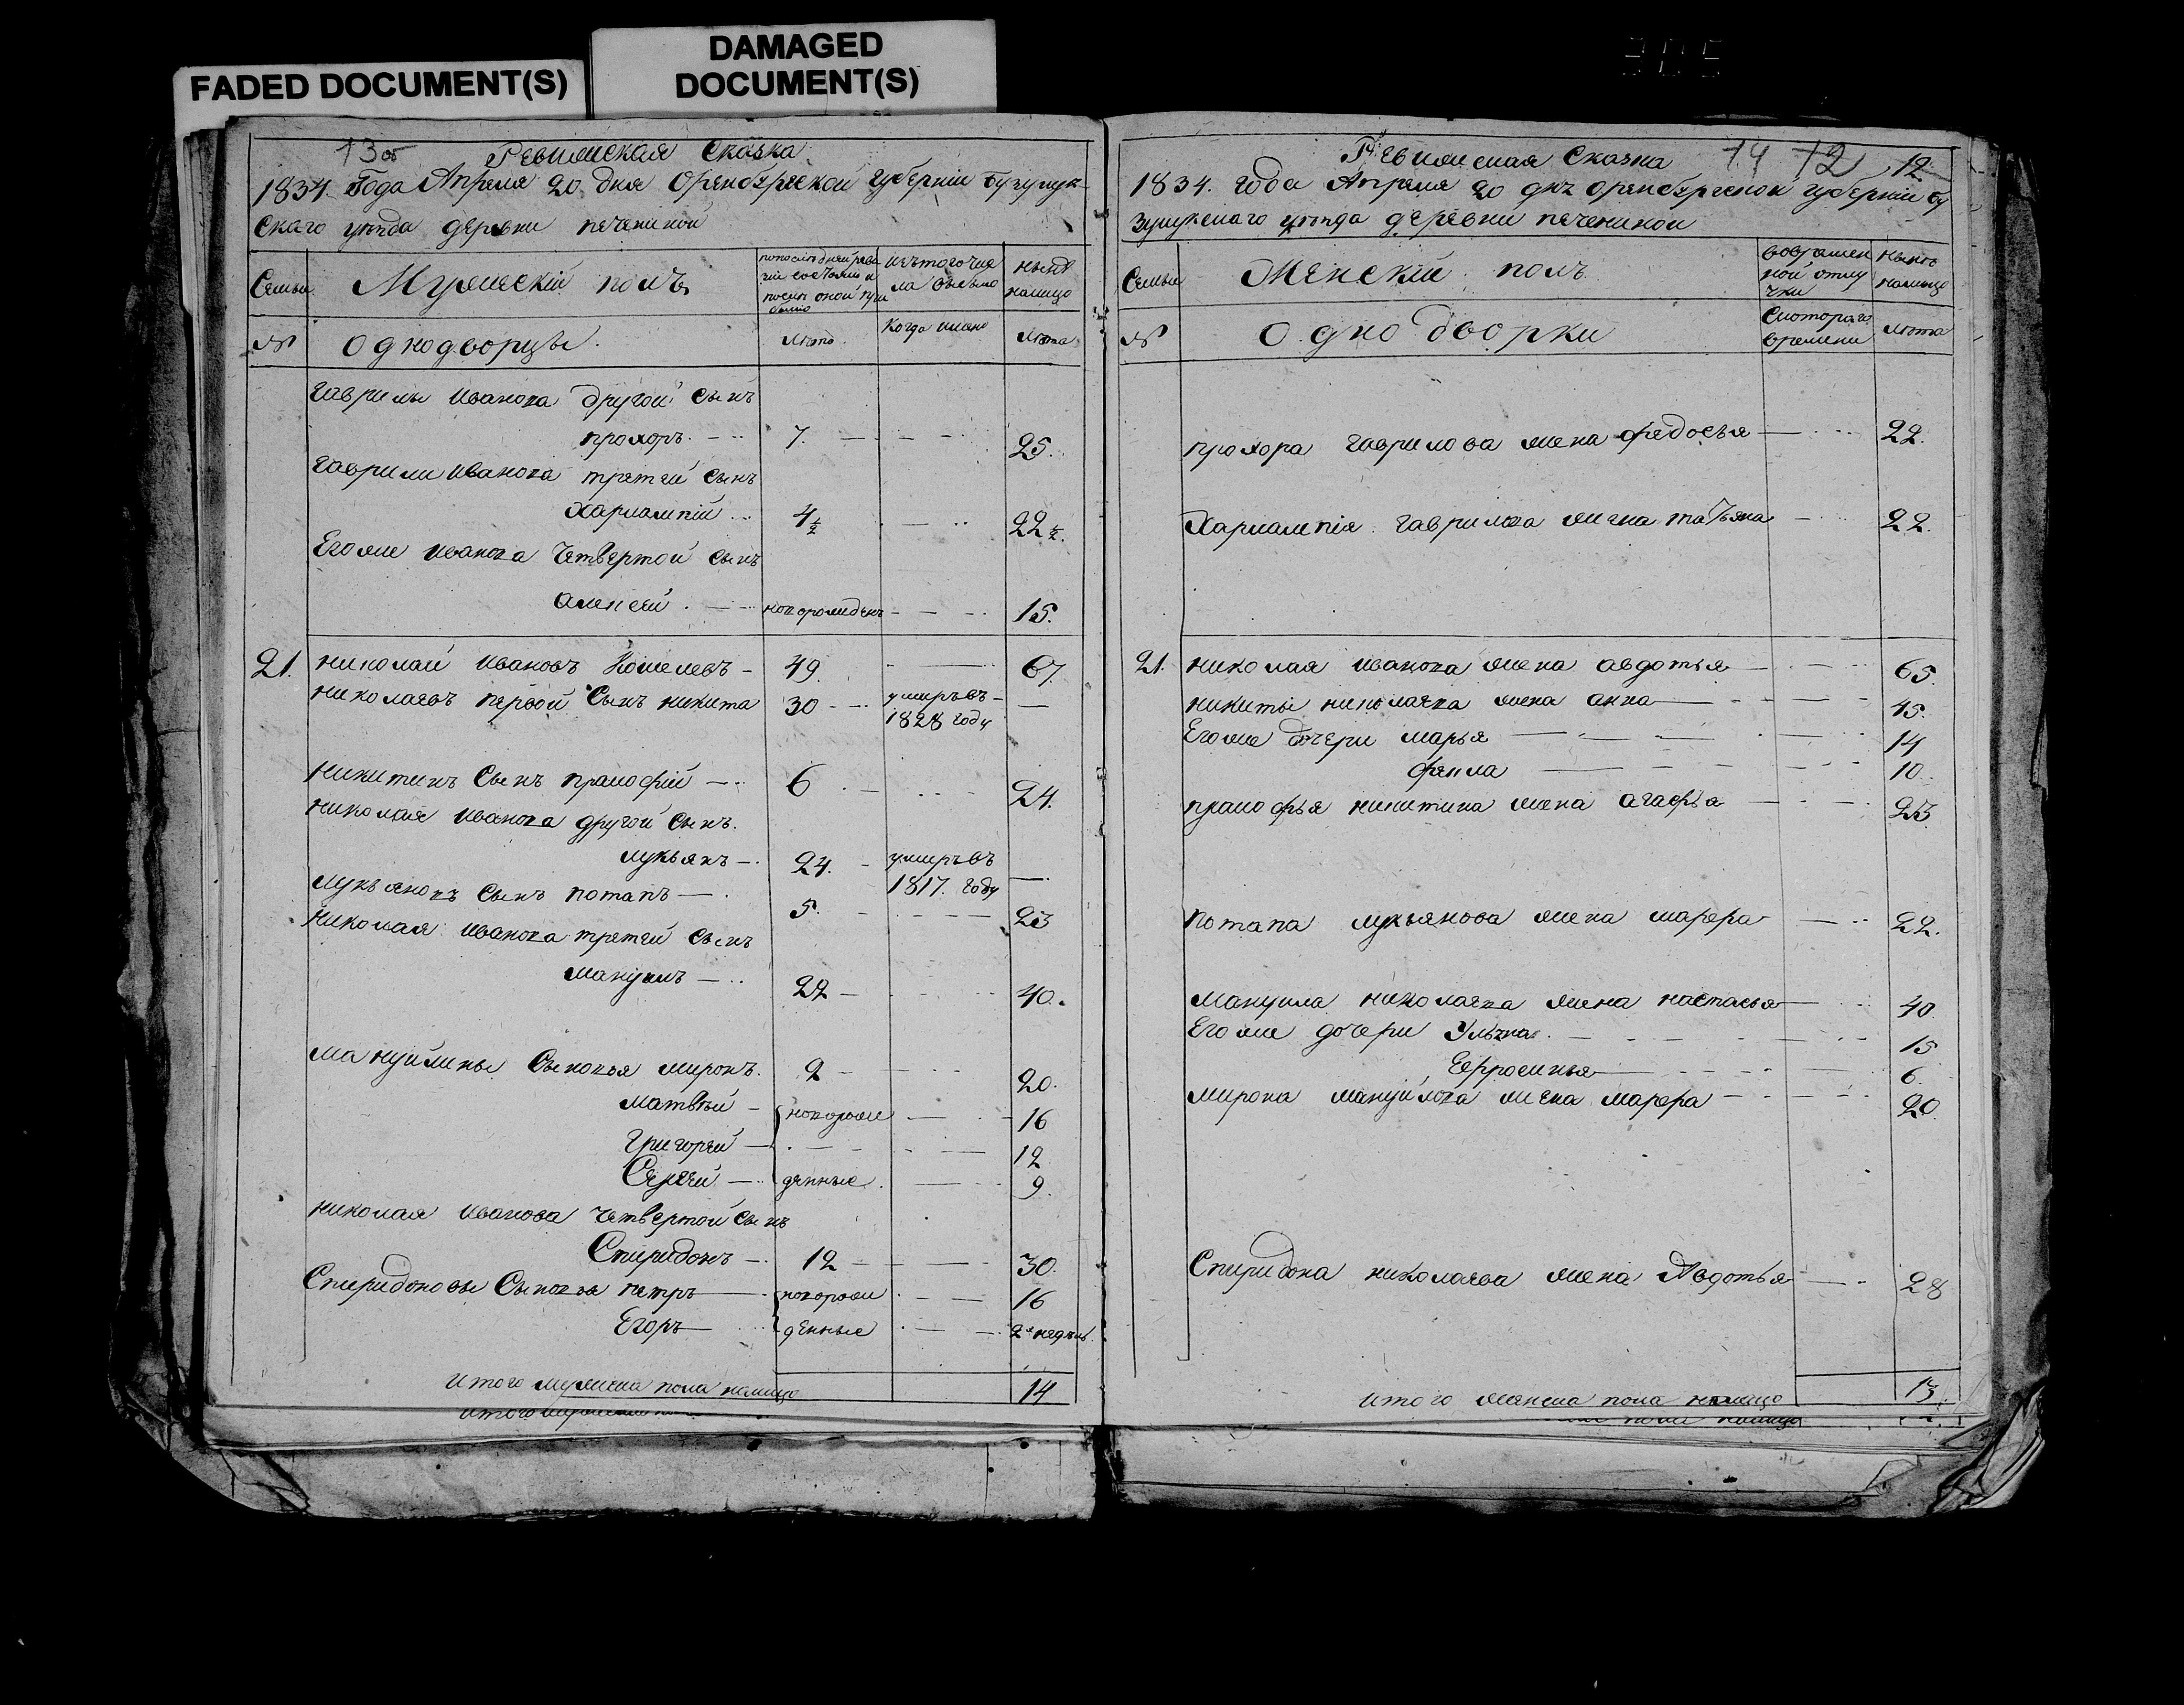 FADED DOCUMENT(S)
DAMAGED
DOCUMENT(S)
305
13 об
Ревижская Сказка
1834 Года Апреля 20 дня Оренбургской губернии бузулук-
скаго уезда деревни печениной
Семьи
Мужескій полъ
ныне
налицо
№
Однодворцы.
лета
Когда имено
лета
Гаврилы Иванова другой сынъ
прохоръ. 7. 25.
Гаврилы Иванова третей сынъ
Харлампій 4½ 22½.
Егоже Иванова четвертой сынъ
Алексей новорожденъ 15.
21. Николай Ивановъ Кошелевъ 49. 67.
Николаевъ первой сынъ Никита 30 умиръ въ
1828 году
Никитинъ сынъ прокофій 6 24.
Николая Иванова другой сынъ.
лукьянъ 24. умиръ въ
1817. году
лукьяновъ сынъ потапъ 5. 23
Николая Иванова третей сынъ
мануилъ 22 40.
мануйлины сыновья миронъ. 2 20.
матвей новорож 16
григорей 12
Сергей денные 9.
Николая Иванова четвертой сынъ
Спиридонъ 12 30.
Спиридоновы сыновья петръ новорож 16
Егоръ денные 2 недели
Итого мужеска пола налицо 14
Ревижская Сказка 14 12 12
1834. года Апреля 20 дня Оренбургской губернии бу
зулукскаго уезда деревни печениной
Семьи
Женскій полъ
вовремен
ной отлу
чки
ныне
налицо
№
Однодворки
Скотораго
времени
лета
прохора гаврилова жена федосья 22.
Харлампія гаврилова жена татьяна 22.
21. Николая Иванова жена авдотья 65.
никиты николаева жена анна 45.
Егоже дочери марья 14
фекла 10.
прокофья никитина жена агафья 23.
потапа лукьянова жена марфа 22.
мануила николаева жена настасья 40.
Егоже дочери Ульяна 15
Ефросинья 6.
мирона мануйлова жена марфа 20
Спиридона николаева жена Авдотья 28
Итого женска пола налицо 13.